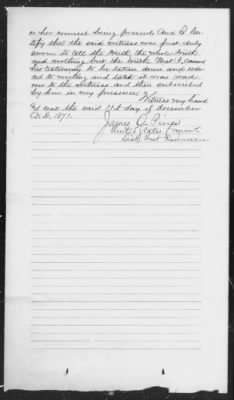 or her counsel being present and I cer
tify that the said witness was first duly
sworn to tell the truth, the whole truth
and nothing but the truth, that I caused
her testimony to be taken down and red
uced to writing and that it was read
over to the witness and then subscribed
by him in my presence
Witness my hand
at the said 21st day of December
A.D. 1871.
James O.
United States Comm
Dist